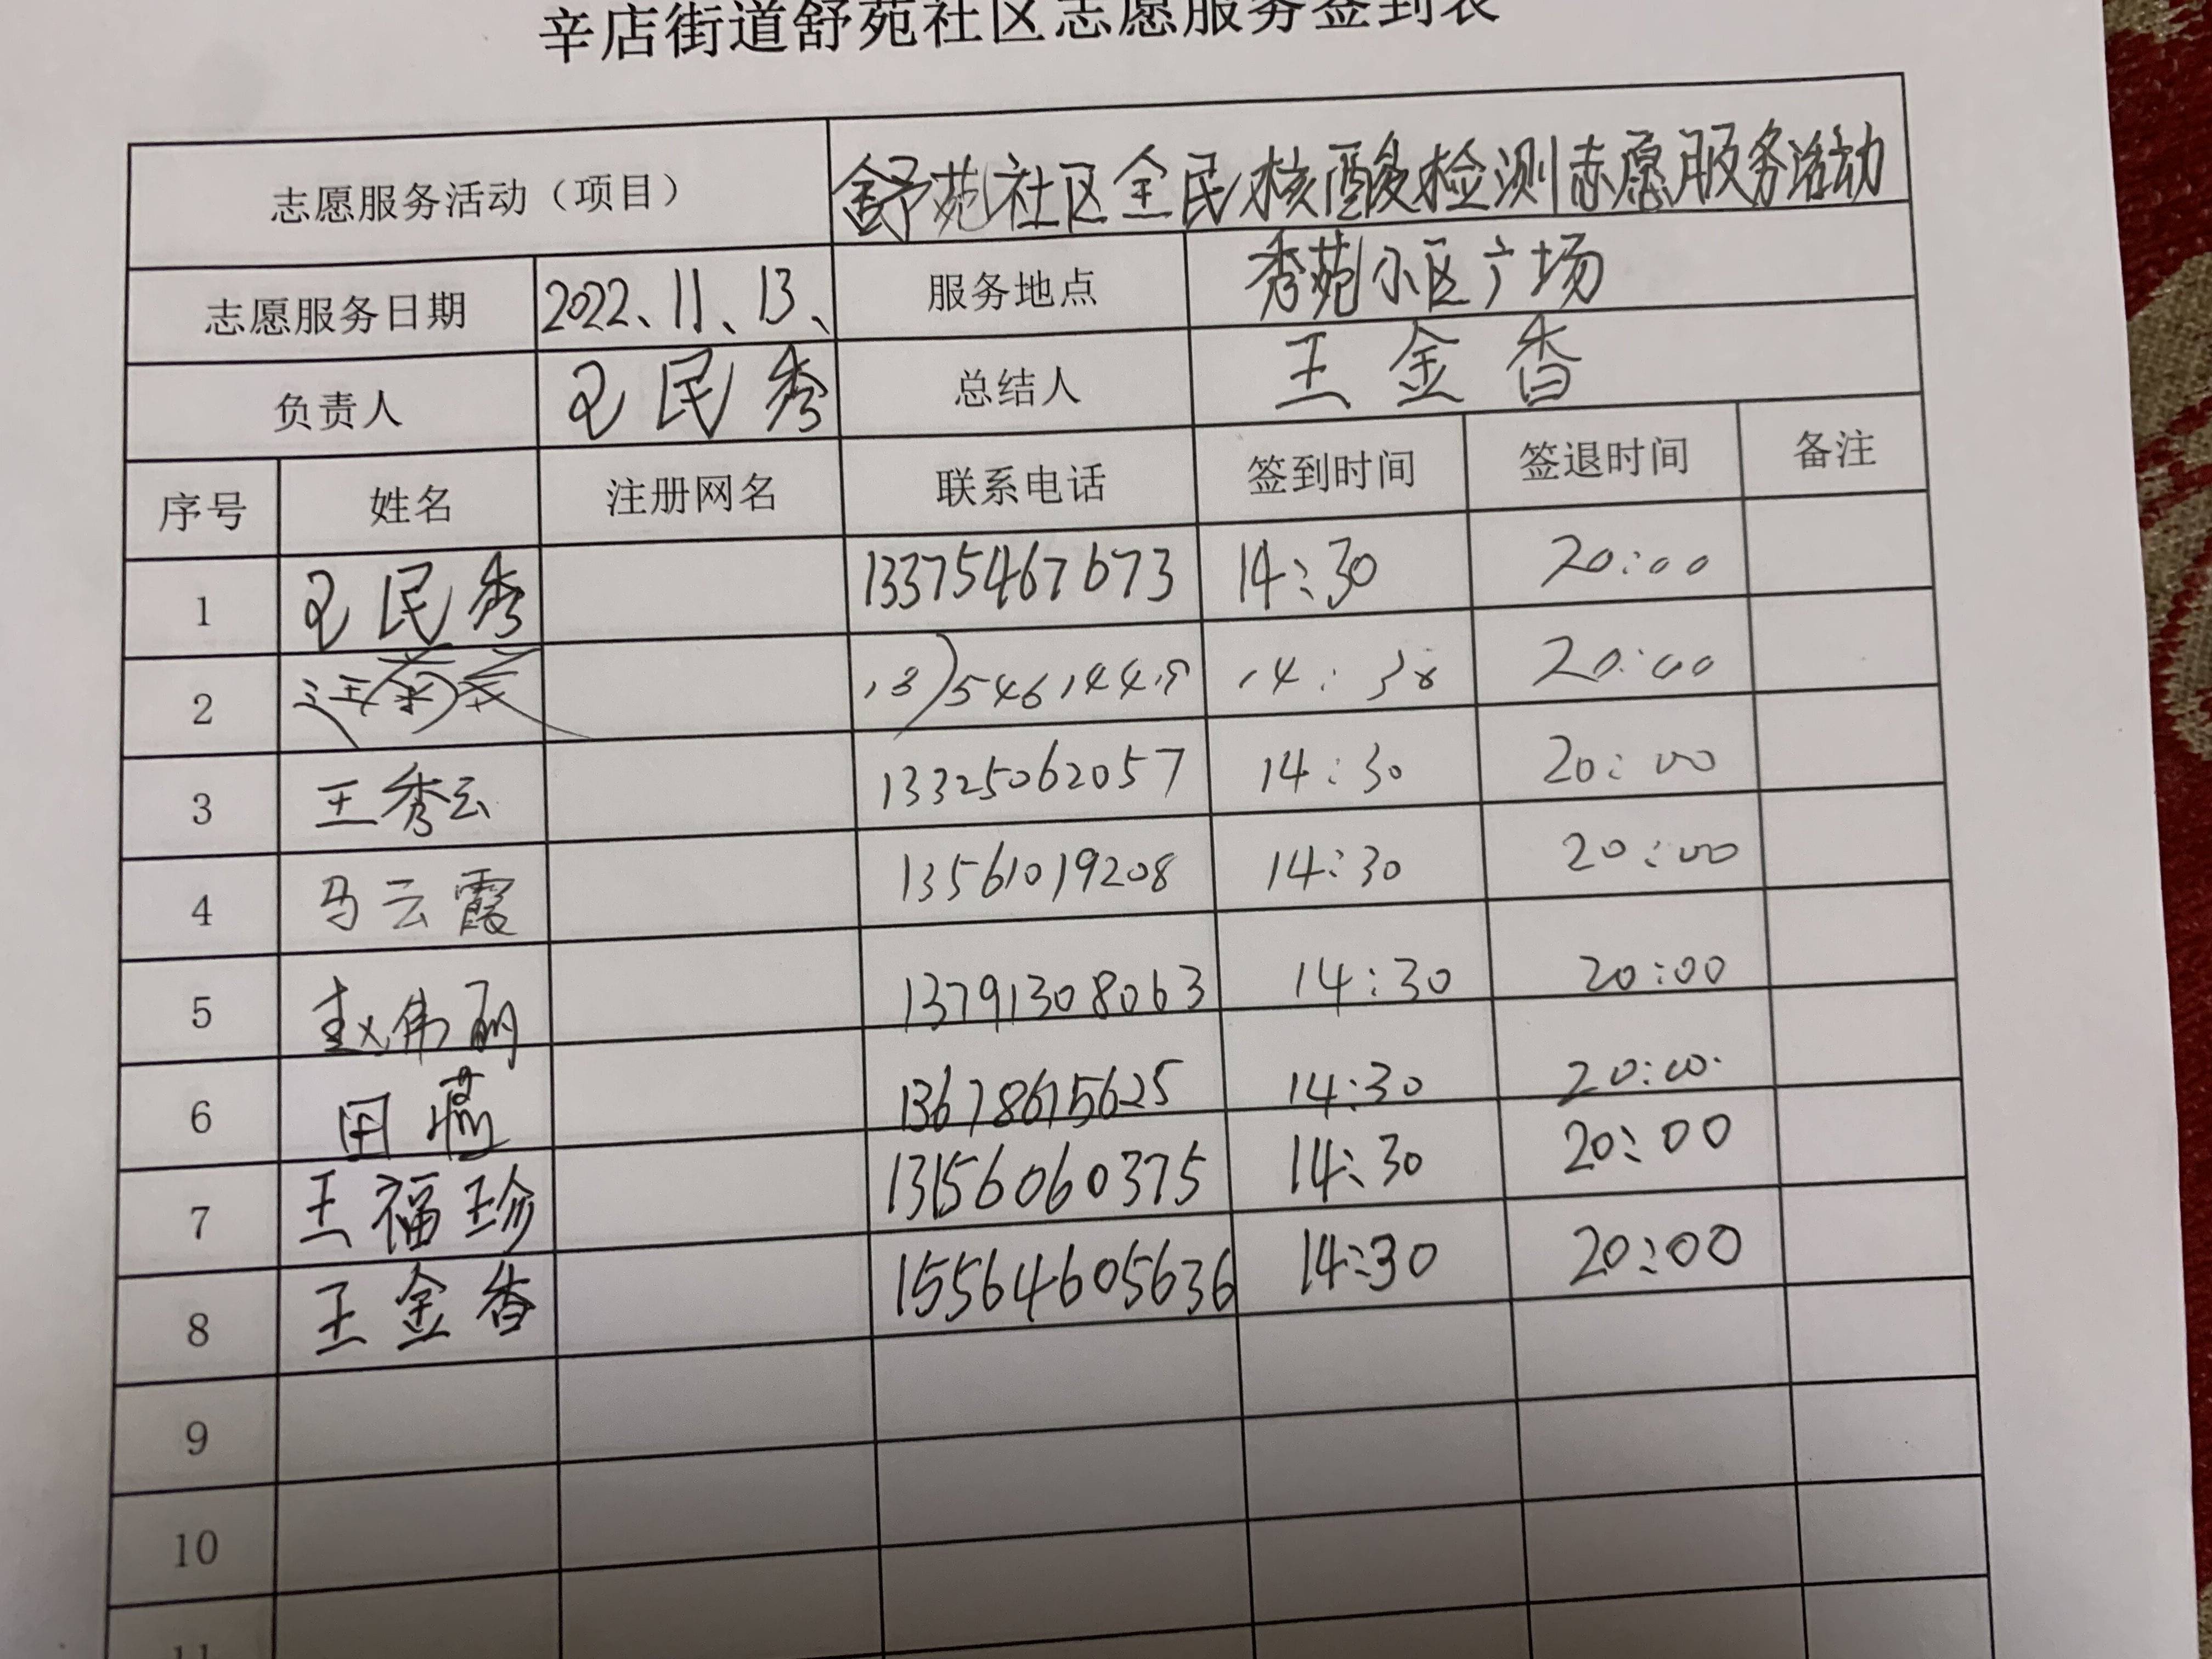 辛店街道舒苑社区志愿服务签到表
志愿服务活动（项目） 舒苑社区全民核酸检测志愿服务活动
志愿服务日期 2022、11、13、 服务地点 秀苑小区广场
负责人 王民秀 总结人 王金香
序号 姓名 注册网名 联系电话 签到时间 签退时间 备注
1 王民秀 13375467673 14:30 20:00
2 14:30 20:00
3 王秀云 13325062057 14:30 20:00
4 马云霞 13561019208 14:30 20:00
5 赵伟丽 13791308063 14:30 20:00
6 田 13678675625 14:30 20:00
7 王福珍 13156060375 14:30 20:00
8 王金香 15564605636 14:30 20:00
9
10
11